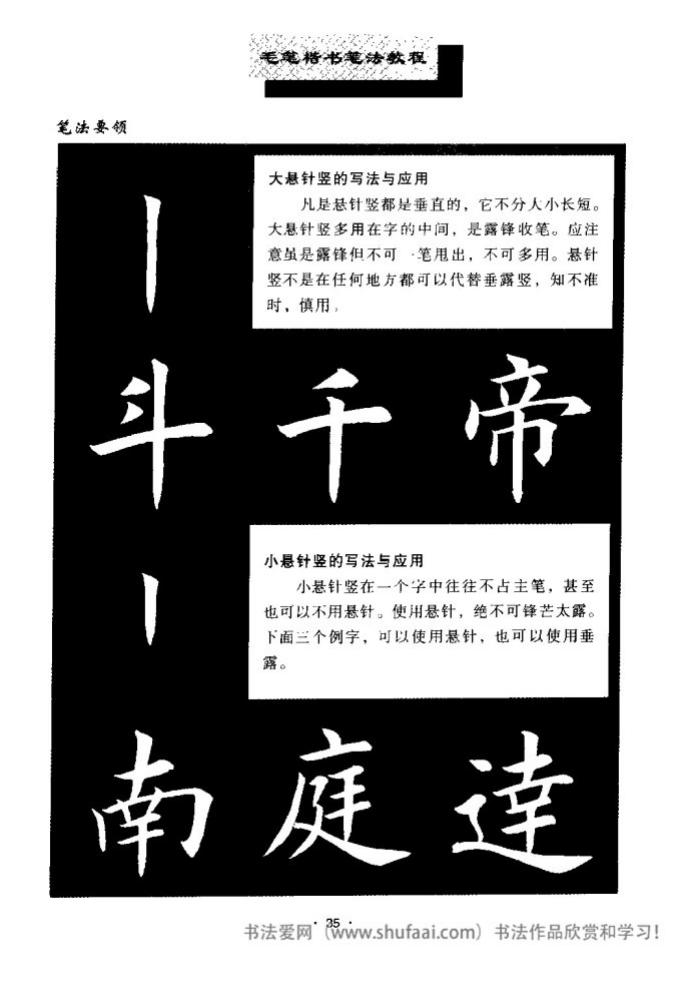 毛笔楷书笔法教程
笔法要领
大悬针竖的写法与应用
凡是悬针竖都是垂直的，它不分大小长短。
大悬针竖多用在字的中间，是露锋收笔。应注
意虽是露锋但不可一笔甩出，不可多用。悬针
竖不是在任何地方都可以代替垂露竖，知不准
时，慎用。
斗千帝
小悬针竖的写法与应用
小悬针竖在一个字中往往不占主笔，甚至
也可以不用悬针。使用悬针，绝不可锋芒太露。
下面三个例字，可以使用悬针，也可以使用垂
露。
南庭達
·35·
书法爱网（www.shufaai.com）书法作品欣赏和学习！